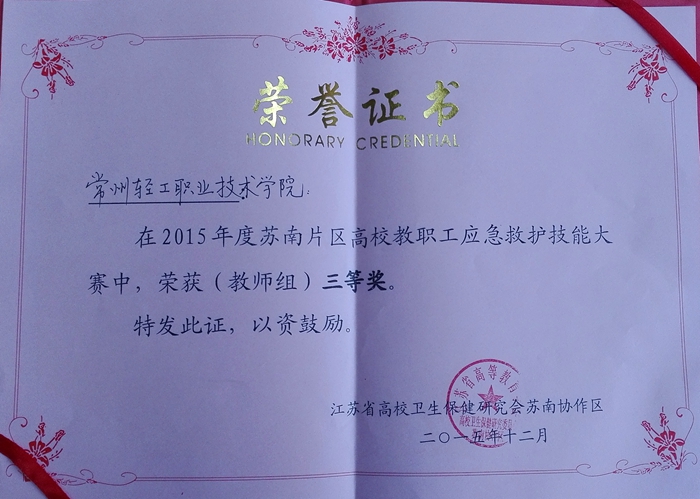 荣誉证书
HONORARY CREDENTIAL
常州轻工职业技术学院：
在2015年度苏南片区高校教职工应急救护技能大
赛中，荣获（教师组）三等奖。
特发此证，以资鼓励。
江苏省高校卫生保健研究会苏南协作区
二〇一五年十二月